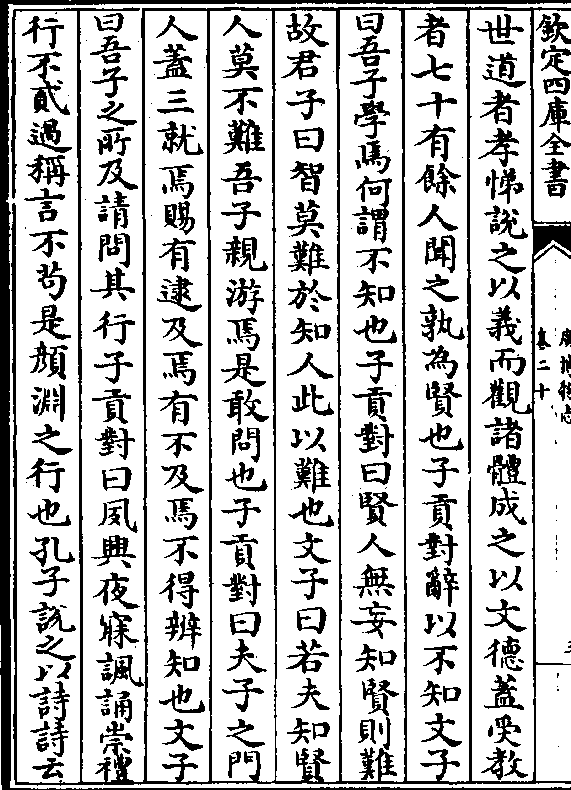 欽定四庫全書
卷二十
世道者孝悌說之以義而觀諸體成之以文德蓋受教
者七十有餘人聞之孰為賢也子貢對辭以不知文子
曰吾子學焉何謂不知也子貢對曰賢人無妄知賢則難
故君子曰智莫難於知人此以難也文子曰若夫知賢
人莫不難吾子親游焉是敢問也子貢對曰夫子之門
人蓋三就焉賜有逮及焉有不及焉不得辨知也文子
曰吾子之所及請問其行子貢對曰夙興夜寐諷誦崇禮
行不貳過稱言不茍是顏淵之行也孔子說之以詩詩云